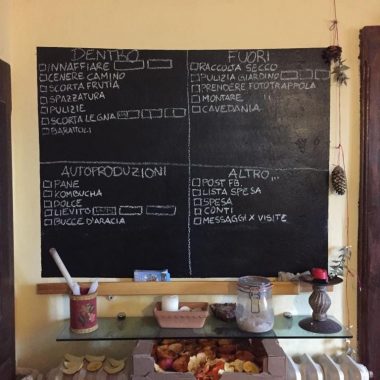 DENTRO
INNAFFIARE
CENERE CAMINO
SCORTA FRUTTA
SPAZZATURA
PULIZIE
SCORTA LEGNA
BARATTOLI
FUORI
RACCOLTA SECCO
PULIZIA GIARDINO
PRENDERE FOTOTRAPPOLA
MONTARE
CAVEDANIA
AUTOPRODUZIONI
PANE
KOMBUCHA
DOLCE
LIEVITO
BUCCE D'ARACIA
ALTRO...
POST FB.
LISTA SPESA
SPESA
CONTI
MESSAGGI X VISITE